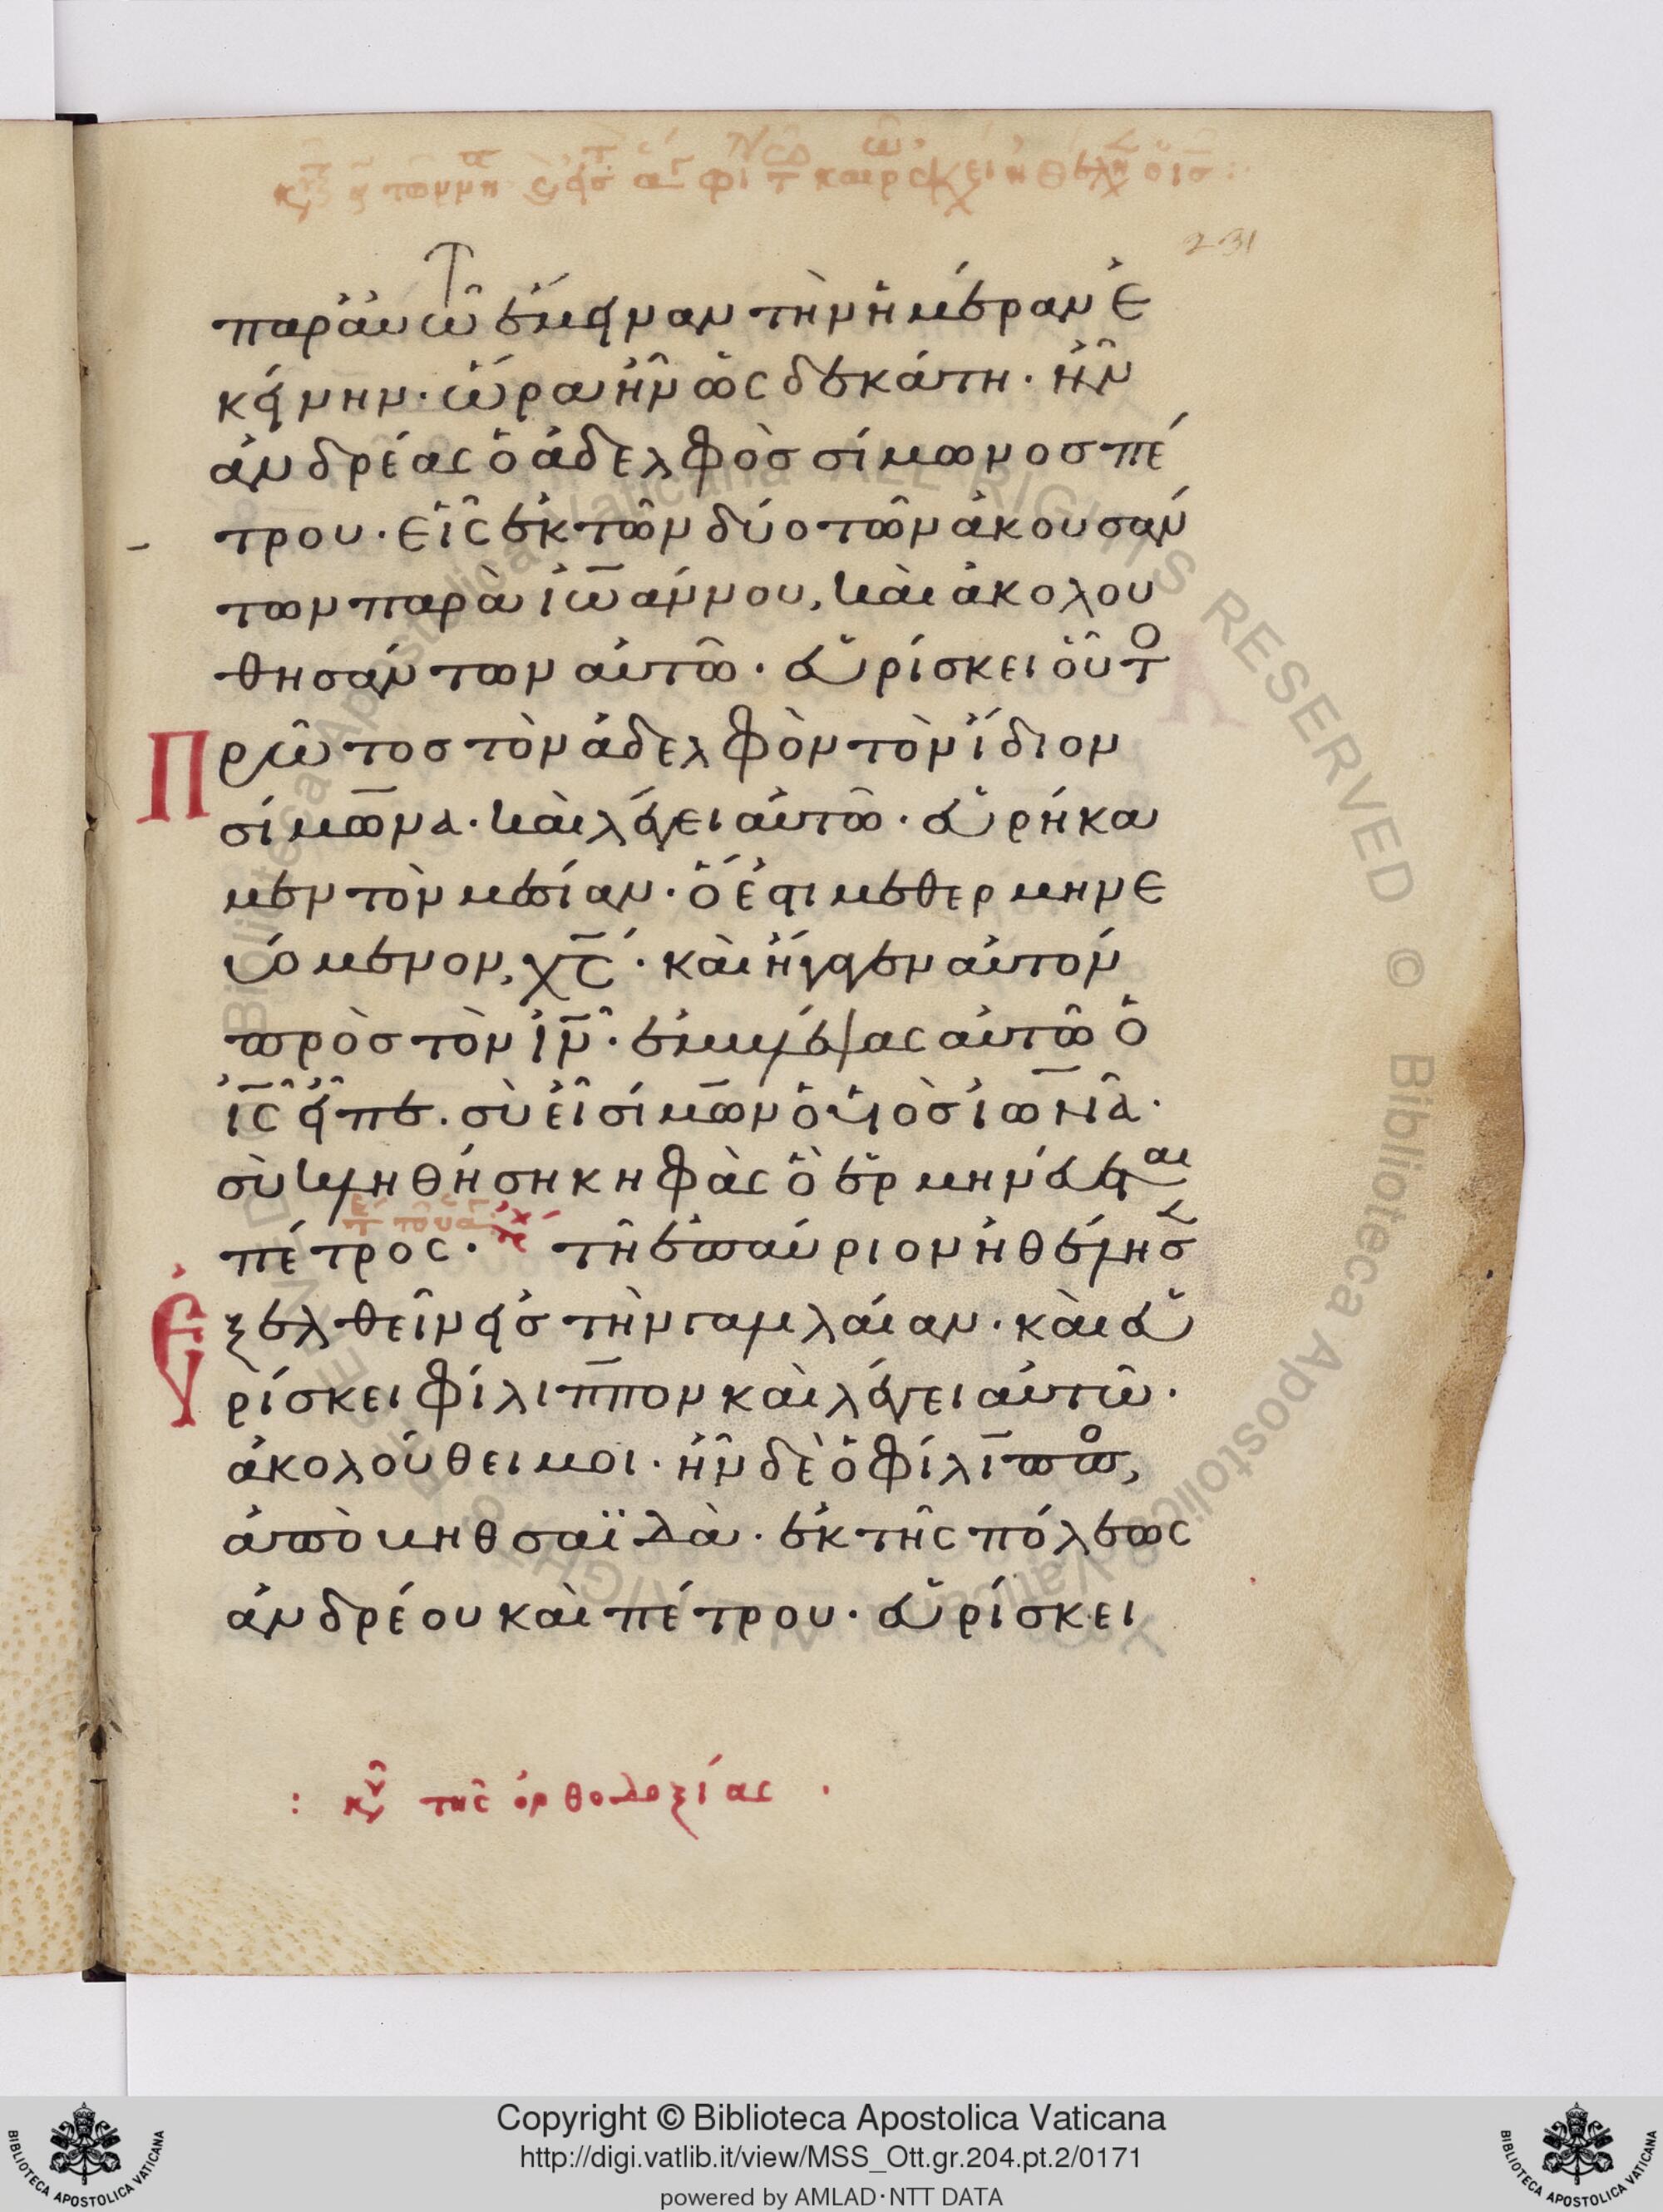 231
παρ' αυτῶ ἔμειναν τὴν ἡμέραν ἐ
κείνην· ὥρα ἦν ὡς δεκάτη· ἦν
ἀνδρέας ὁ ἀδελφὸσ σίμωνοσ πέ
τρου· εἷς ἐκ τῶν δύο τῶν ἀκουσάν
των παρὰ ἰωάννου, καὶ ἀκολου
θησάντων αὐτῶ· εὑρίσκει οὗτο
Πρῶτοσ τὸν ἀδελφὸν τὸν ἴδιον
σίμωνα· καὶ λέγει αὐτῶ· εὑρήκα
μεν τὸν μεσίαν· ὅ ἐστι μεθερμηνε
υόμενον, χς· καὶ ἤγαγεν αὐτόν
πρὸσ τὸν ἰν· ἐμβλέψας αὐτῶ ὁ
ἰς εἶπε. σὺ εἶ σίμων ὁ υἱὸσ ἰωνᾶ·
σὺ κληθήση κηφὰς ὃ ἑρμηνεύεται
πέτρος· τῆ ἐπαύριον ἠθέλησ
Ἐξελθεῖν εἰσ τὴν γαλιλαίαν· καὶ εὑ
ρίσκει φίλιππον καὶ λέγει αὐτῶ·
ἀκολούθει μοι· ἦν δὲ ὁ φίλιππο,
ἀπὸ βηθσαϊδὰ· ἐκ τῆς πόλεως
ἀνδρέου καὶ πέτρου· εὑρίσκει
: κυ τῆς ὀρθοδοξίας ·
Copyright © Biblioteca Apostolica Vaticana
http://digi.vatlib.it/view/MSS_Ott.gr.204.pt.2/0171
powered by AMLAD·NTT DATA
BIBLIOTECA APOSTOLICA VATICANA
BIBLIOTECA APOSTOLICA VATICANA